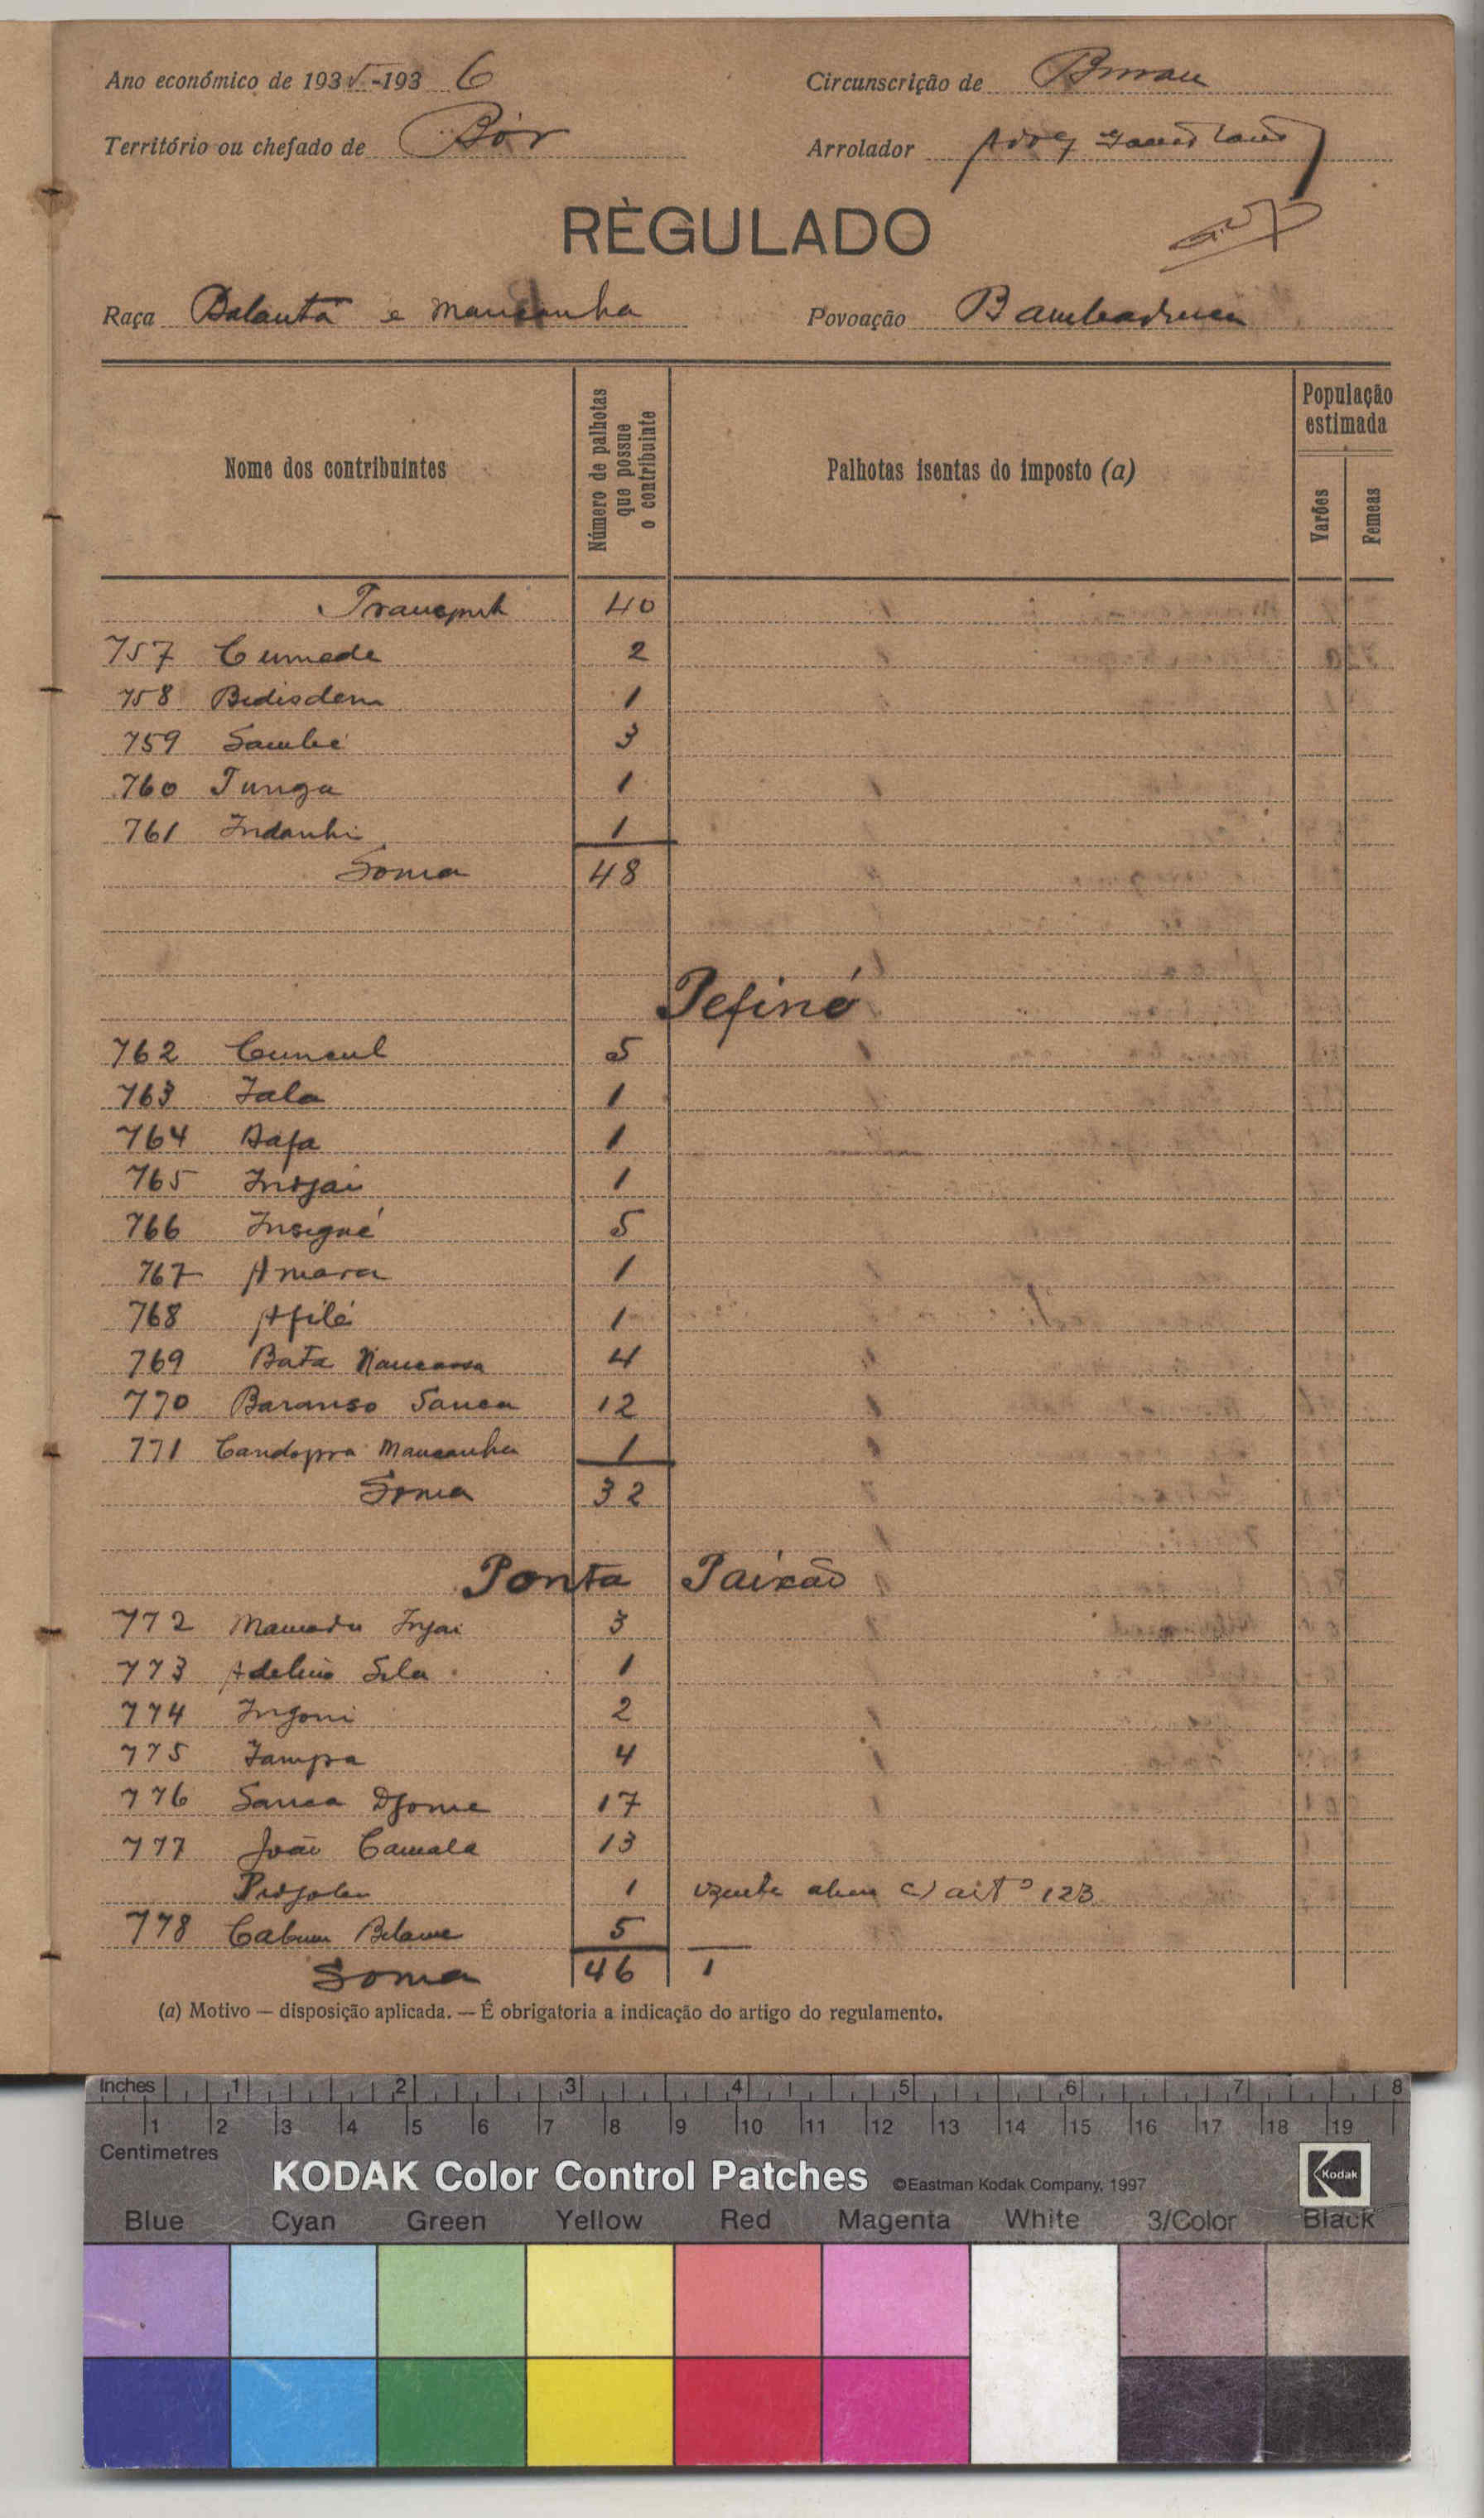 Ano económico de 1935-1936
Circunscrição de
Território ou chefado de Bór
Arrolador
RÈGULADO
Raça Balanta e mancanha
Povoação Bambadinca
Nome dos contribuintes
Número de palhotas que possue o contribuinte
Palhotas isentas do imposto (a)
População estimada
Varões
Femeas
Transporte 40
757 Cumede 2
758 Bidisdem 1
759 Sambé 3
760 Tunga 1
761 Indanhi 1
Soma 48
Pefiné
762 5
763 Iala 1
764 Dafa 1
765 Injai 1
766 Insigué 5
767 Amara 1
768 Afilé 1
769 Bata 4
770 Baranso Sanca 12
771 Candopra Mancanha 1
Soma 32
Ponta Paixão
772 Mamadu Injai 3
773 Adelino Sila 1
774 Ingoni 2
775 Iampa 4
776 Sanca Djome 17
777 João Camala 13
1 c) artº 123
778 5
Soma 46 1
(a) Motivo — disposição aplicada. — É obrigatoria a indicação do artigo do regulamento.
Inches 1 2 3 4 5 6 7 8
1 2 3 4 5 6 7 8 9 10 11 12 13 14 15 16 17 18 19
Centimetres
KODAK Color Control Patches ©Eastman Kodak Company, 1997 Kodak
Blue Cyan Green Yellow Red Magenta White 3/Color Black